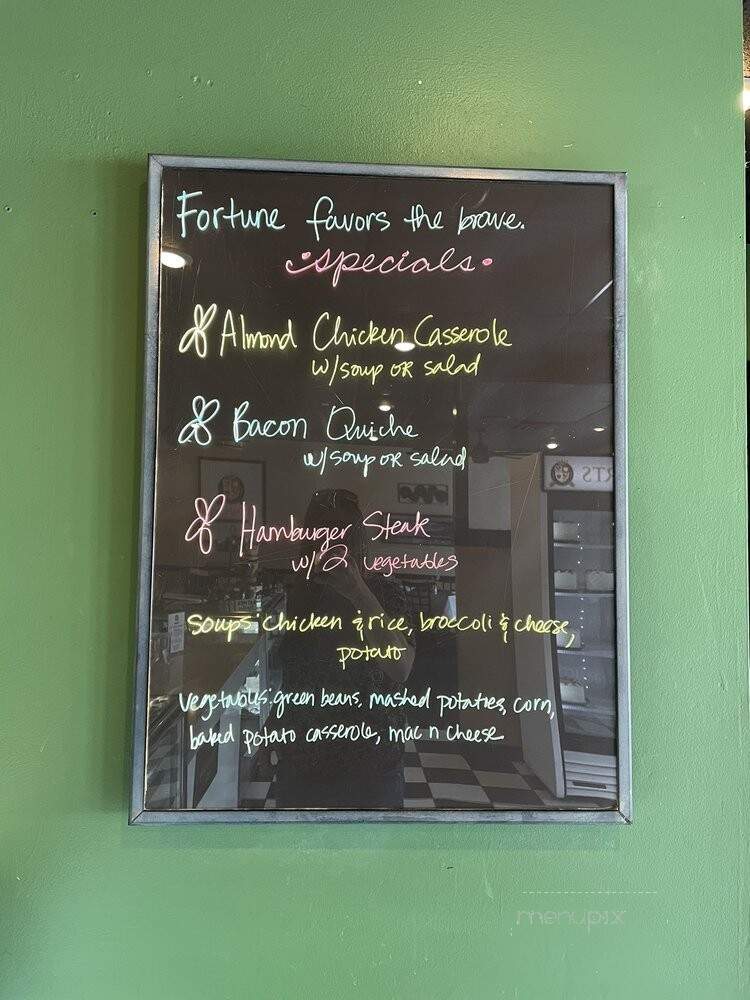 Fortune favors the brave.
specials.
Almond Chicken Casserole
w/soup OR salad
Bacon Quiche
w/soup OR salad
Hamburger Steak
w/2 vegetables
Soups: chicken & rice, broccoli & cheese,
potato
vegetables: green beans, mashed potatoes, corn,
baked potato casserole, mac n cheese
menupix